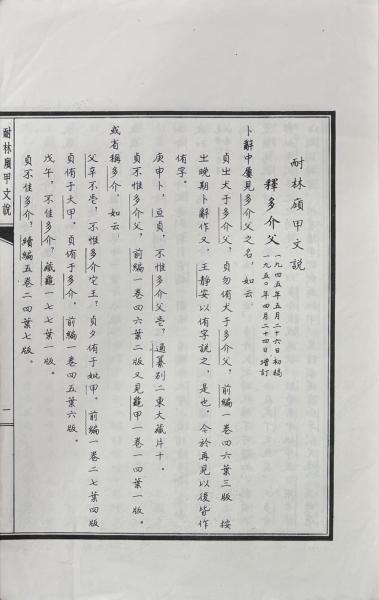 耐林廎甲文説
釋多介父
一九四五年五月二十六日初稿
一九五〇年四月二十四日增訂
卜辭中屢見多介父之名，如云：
貞㞢犬于多介父，貞勿侑犬于多介父，前編一卷四六葉三版 按
㞢晚期卜辭作又，王靜安以侑字說之，是也，今於再見以後皆作
侑字。
庚申卜，亘貞，不惟多介父壱，通纂別二東大藏片十。
貞不惟多介父，前編一卷四六葉二版又見龜甲一卷一四葉一版。
或省稱多介，如云：
父辛不壱，不惟多介它王，貞夕侑于妣甲，前編一卷二七葉四版
貞侑于大甲，貞侑于多介，前編一卷四五葉六版。
戊午，不佳多介，藏龜一七七葉一版。
貞不佳多介，續編五卷二四葉七版。
耐林廎甲文說
一